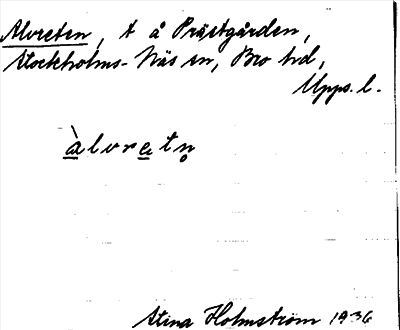 Alvreten, t å Prästgården,
Stockholms-Näs sn, Bro hd,
Upps. l.
àlvretn̥
Stina Holmström 1936